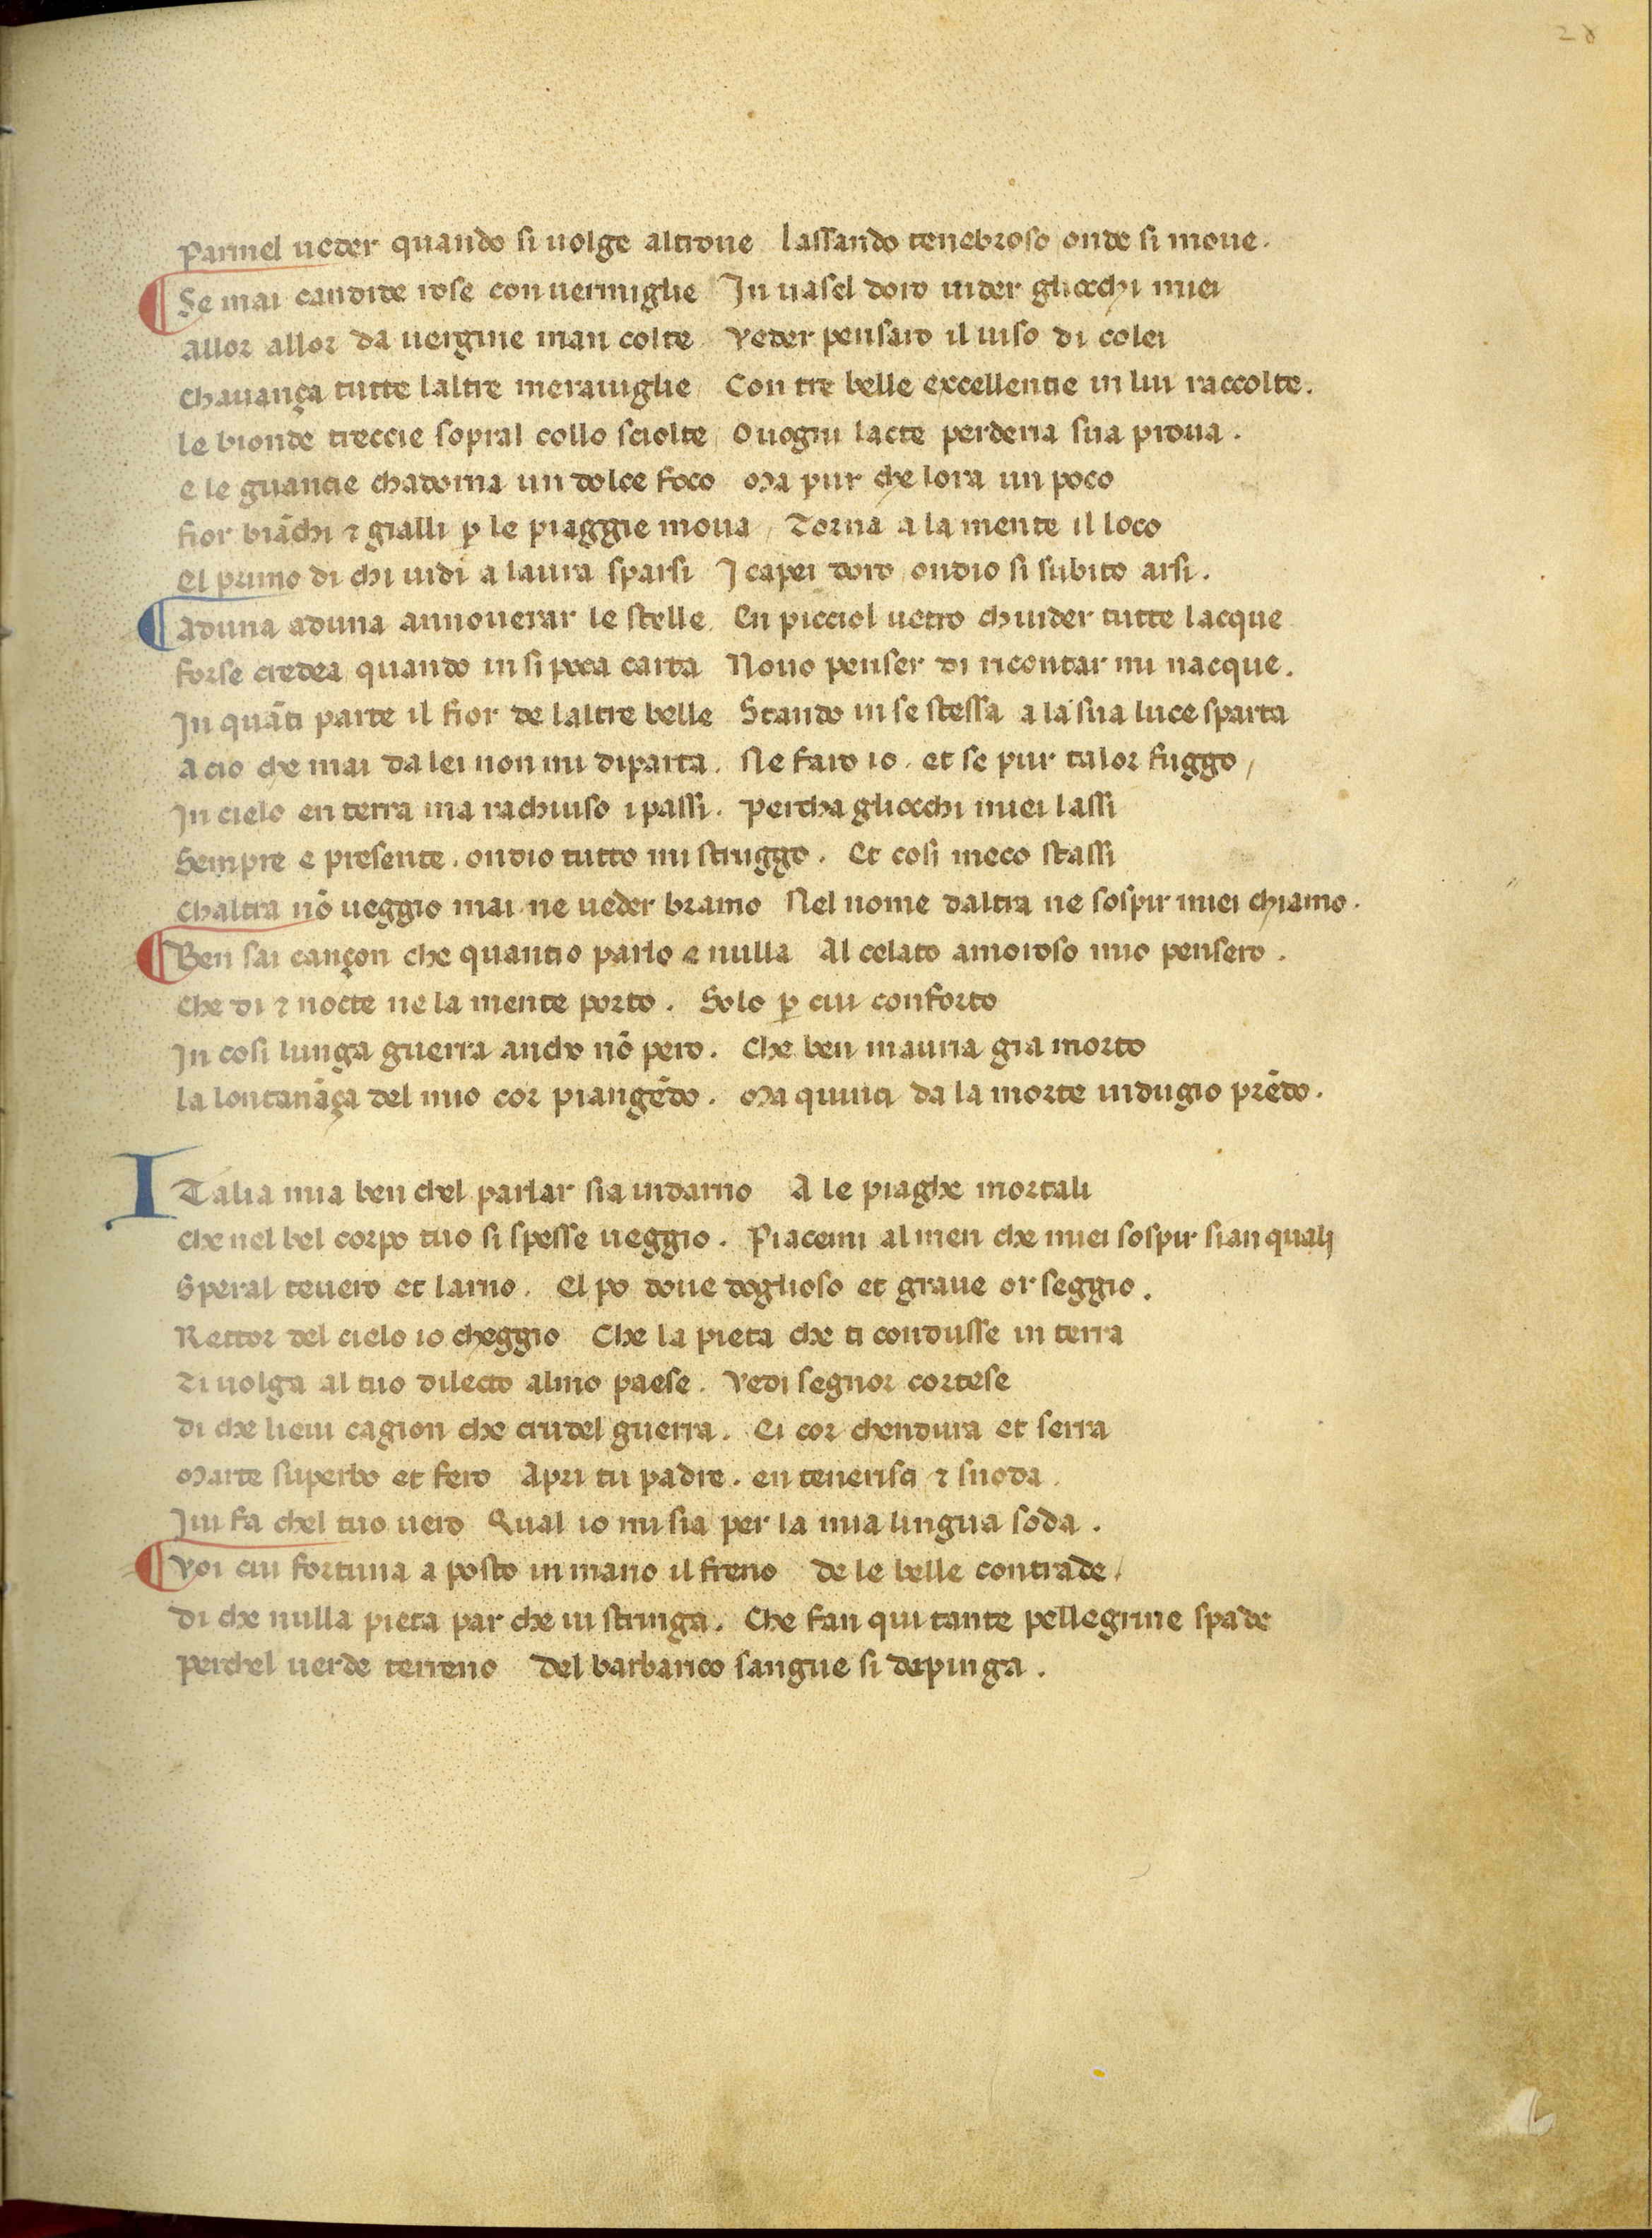 28
Parmel ueder quando si uolge altroue lassando tenebroso onde si moue.
Se mai candide rose con uermiglie In uasel doro uider gliocchi miei
Allor allor da uergine man colte Veder pensaro il uiso di colei
Chauança tutte laltre merauiglie Con tre belle excellentie in lui raccolte.
le bionde treccie sopral collo sciolte, Ouogni lacte perderia sua proua.
e le guancie chadorna un dolce foco Ma pur che lora un poco
fior biãchi ⁊ gialli ꝑ le piaggie moua, Torna a la mente il loco
el primo di chi uidi a laura sparsi I capei doro ondio si subito arsi.
Aduna aduna annouerar le stelle. En picciol uetro chiuder tutte lacque
forse credea, quando in si poca carta Nouo penser di ricontar mi nacque.
In quãti parte il fior de laltre belle Stando in se stessa a la sua luce sparta
A cio che mai da lei non mi diparta. Ne faro io. et se pur talor fuggo,
In cielo en terra ma rachiuso i passi. Percha gliocchi miei lassi
Sempre e presente. ondio tutto mi struggo. Et cosi meco stassi
Chaltra nõ ueggio mai ne ueder bramo Nel nome daltra ne sospir miei chiamo.
Ben sai cançon che quantio parlo e nulla Al celato amoroso mio pensero.
Che di ⁊ nocte ne la mente porto. Solo ꝑ cui conforto
In cosi lunga guerra ancho nõ pero. Che ben mauria gia morto
la lontanãça del mio cor piangẽdo. Ma quinci da la morte indugio prẽdo.
ITalia mia ben chel parlar sia indarno A le piaghe mortali
che nel bel corpo tuo si spesse ueggio. Piacemi almen che miei sospir sian quali
Speral teuero et larno. El po doue doglioso et graue or seggio.
Rettor del cielo io cheggio Che la pieta che ti condusse in terra
Ti uolga al tuo dilecto almo paese. Vedi segnor cortese
di che lieui cagion che crudel guerra. Ei cor chendura et serra
Marte superbo et fero Apri tu padre. en tenerisci ⁊ snoda.
Iui fa chel tuo uero Qual io mi sia per la mia lingua soda.
Voi cui fortuna a posto in mano il freno de le belle contrade,
Di che nulla pieta par che ui stringa. Che fan qui tante pellegrine spade
perchel uerde terreno Del barbarico sangue si depinga.